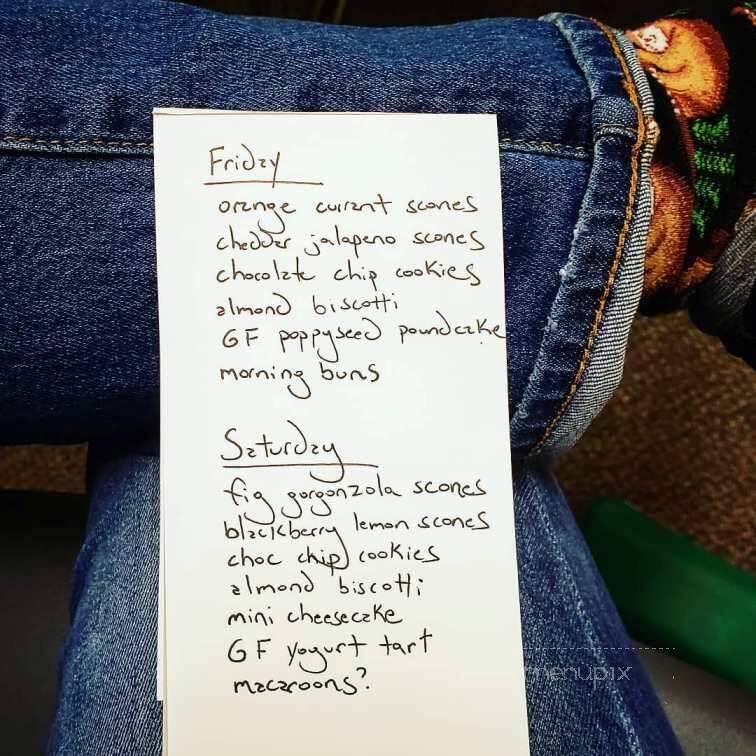 Friday
orange currant scones
cheddar jalapeno scones
chocolate chip cookies
almond biscotti
GF poppyseed poundcake
morning buns
Saturday
fig gorgonzola scones
blackberry lemon scones
choc chip cookies
almond biscotti
mini cheesecake
GF yogurt tart
macaroons?
menupix